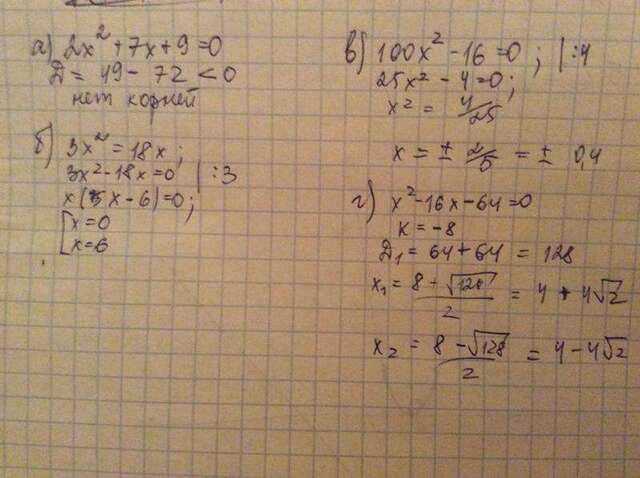 а) 2x² + 7x + 9 = 0
Д = 49 - 72 < 0
нет корней
б) 3x² = 18x;
3x² - 18x = 0 | :3
x( x - 6) = 0;
[x = 0
x = 6
в) 100x² - 16 = 0; | :4
25x² - 4 = 0;
x² = 4/25
x = ± 2/5 = ± 0,4
г) x² - 16x - 64 = 0
K = -8
Д₁ = 64 + 64 = 128
x₁ = (8 + √128)/2 = 4 + 4√2
x₂ = (8 - √128)/2 = 4 - 4√2